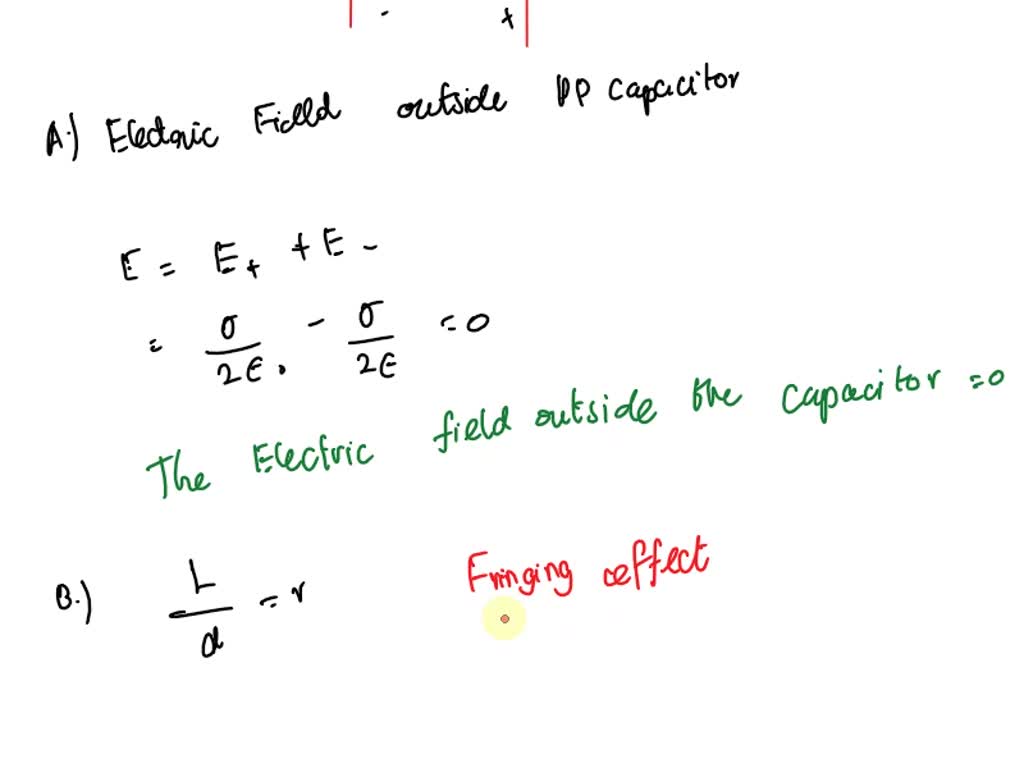 - +
A.) Electric Fielld outside PP capacitor
E = E+ + E-
= σ/2ϵ. - σ/2ϵ = 0
The Electric field outside the capacitor = 0
B.) L/d = r
Fringing effect